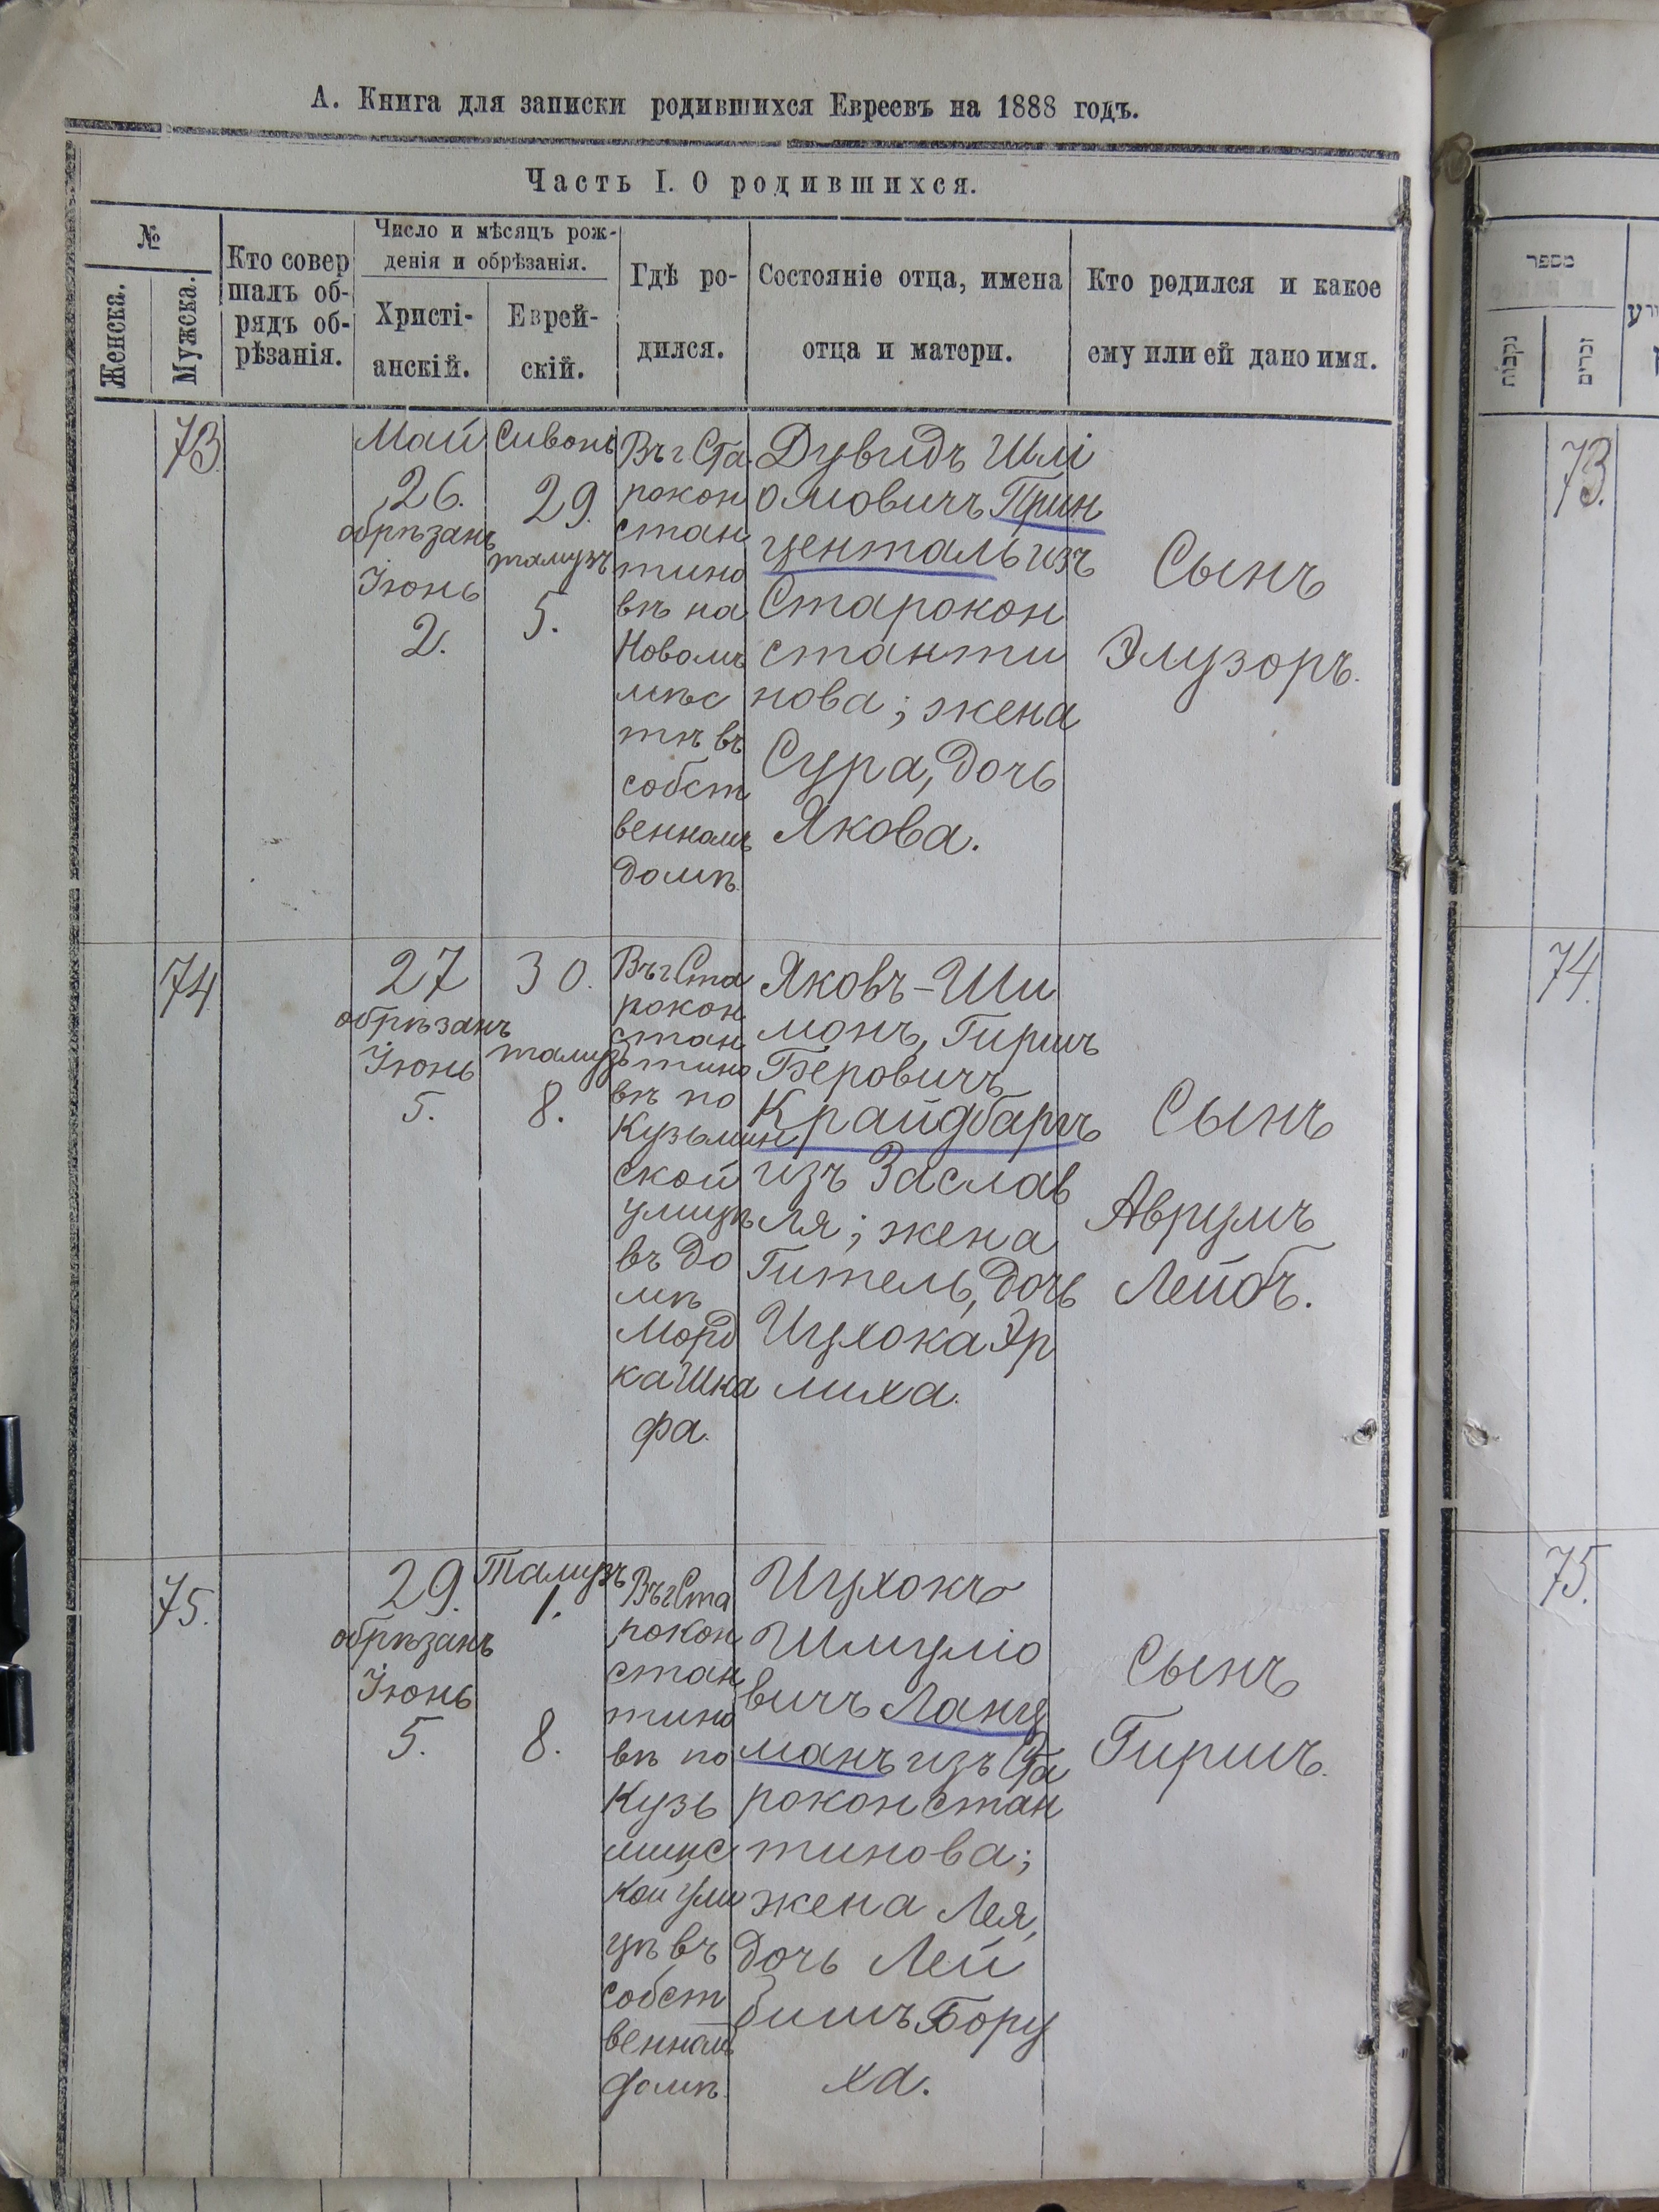 А. Книга для записки родившихся Евреевъ на 1888 годъ.
Часть I. О родившихся.
№
Женска.
Мужска.
Кто совер
шалъ об-
рядъ об-
рѣзанія.
Число и мѣсяцъ рож-
денія и обрѣзанія.
Христі-
анскій.
Еврей-
скій.
Гдѣ ро-
дился.
Состояніе отца, имена
отца и матери.
Кто родился и какое
ему или ей дано имя.
73.
Май
26.
обрѣзанъ
Іюнь
2.
Сивонъ
29.
тамузъ
5.
Въ г Ста
рокон
стан
тино
вѣ на
Новомъ
мѣс
тѣ въ
собст
венномъ
домѣ.
Дувидъ Шлі
омовичъ Прин
центаль изъ
Старокон
станти
нова; жена
Сура, дочь
Якова.
Сынъ
Элузоръ.
74.
27
обрѣзанъ
Іюнь
5.
30.
тамузъ
8.
Въ г Ста
рокон
стан
тино
вѣ по
Кузьмин
ской
улицѣ
въ до
мѣ
Морд
ка Шка
фа.
Яковъ-Ши
монъ, Гиршъ
Беровичъ
Крайдбаргъ
изъ Заслав
ля; жена
Гитель, дочь
Ицхока Эр
лиха.
Сынъ
Аврумъ
Лейбъ.
75.
29.
обрѣзанъ
Іюнь
5.
Тамузъ
1.
8.
Въ г Ста
рокон
стан
тино
вѣ по
Кузь
минс
кой ули
цѣ въ
собст
венном
домѣ.
Ицхокъ
Шмуліо
вичъ Ланц
манъ изъ Ста
роконстан
тинова;
жена Лея,
дочь Лей
бишъ Бору
ха.
Сынъ
Гиршъ.
מספר
נקבות
זכרים
73.
74.
75.